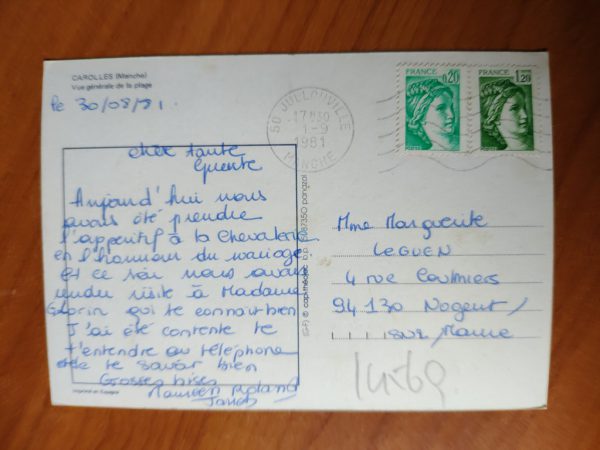 CAROLLES (Manche)
Vue générale de la plage
le 30/08/81.
FRANCE
0,20
FRANCE
1,20
50 JULLOUVILLE
17H30
1-9
1981
MANCHE
chère tante
Aujourd'hui nous
avons été prendre
l'apperitif à la Chevalerie
en l'honneur du mariage.
et ce soir nous avons
rendu visite à Madame
qui te connait bien
J'ai été contente te
t'entendre au téléphone
te savoir bien
Grosses bises
Roland
Mme Marguerite
LEGUEN
4 rue Coulmiers
94130 Nogent/
sur/Marne
Imprimé en Espagne